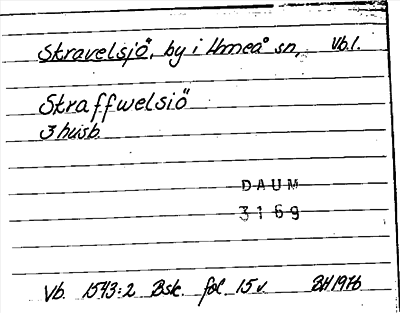 Stravelsjö, by i Umeå sn, Vb.l.
Straffwelsiö
3 husb.
DAUM
3169
Vb. 1543:2 Bsk. fol. 15 v. BH 1976